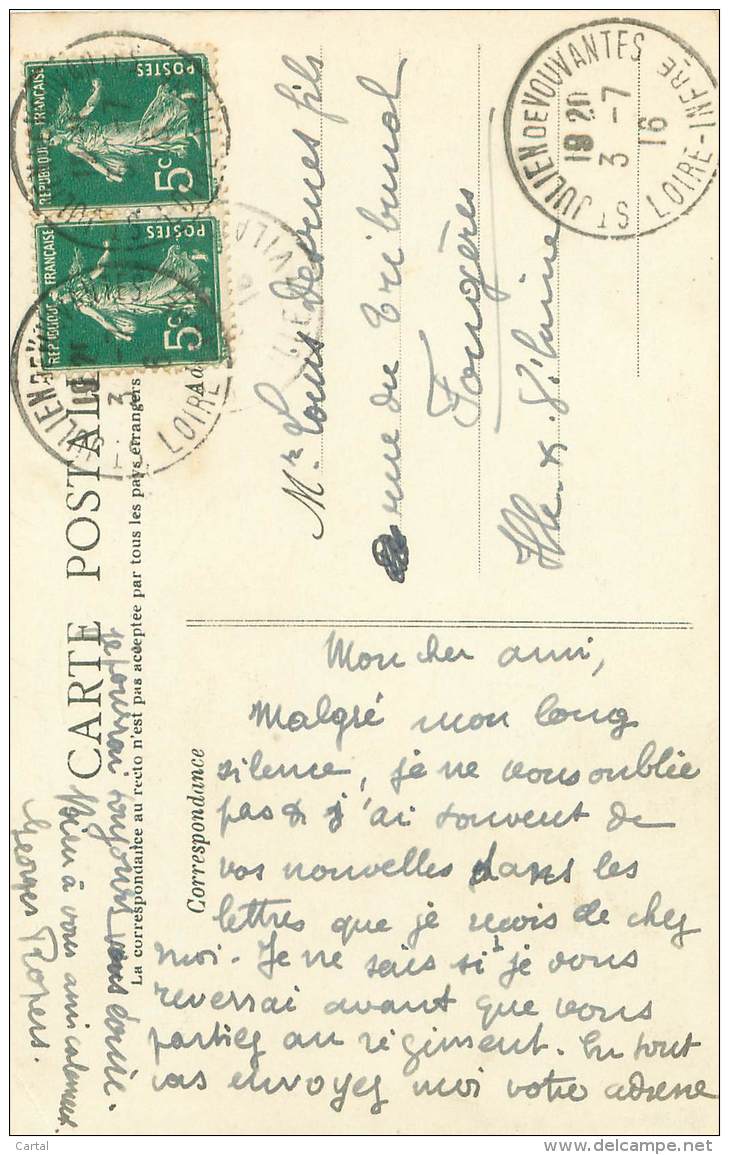 CARTE POSTALE
La correspondance au recto n'est pas acceptée par tous les pays étrangers
Correspondance
REPUBLIQUE FRANÇAISE
POSTES
5c
REPUBLIQUE FRANÇAISE
POSTES
5c
ST JULIEN DE VOUVANTES
LOIRE-INFRE
3-7
16
Mr Louis fils
rue du Tribunal
Fougères
Ille & Vilaine
Mon cher ami,
Malgré mon long
silence, je ne vous oublie
pas & j'ai souvent de
vos nouvelles dans les
lettres que je reçois de chez
moi. Je ne sais si je vous
reverrai avant que vous
partiez au régiment. En tout
cas envoyez moi votre adresse
je pourrai toujours vous écrire.
Bien à vous amicalement
Georges
Cartal
delcampe.net